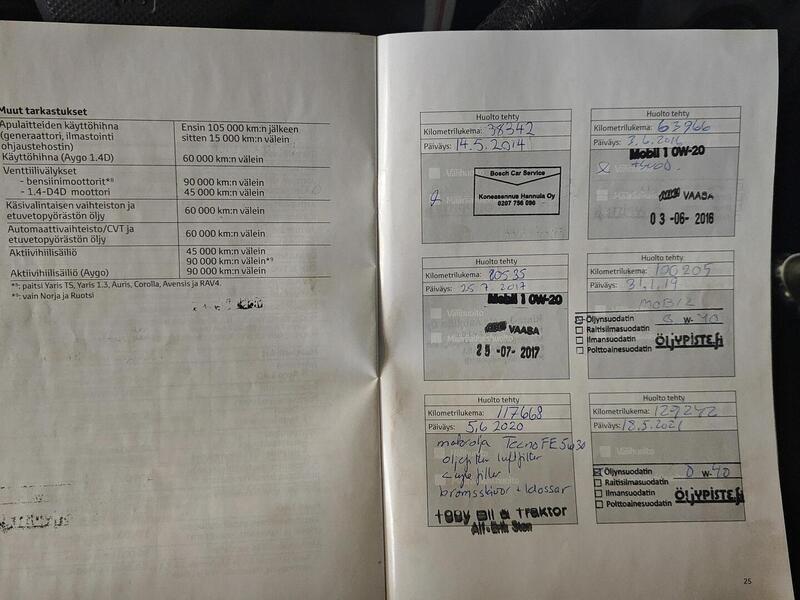 Muut tarkastukset
Apulaitteiden käyttöhihna
(generaattori, ilmastointi
ohjaustehostin)
Ensin 105 000 km:n jälkeen
sitten 15 000 km:n välein
Käyttöhihna (Aygo 1.4D)
60 000 km:n välein
Venttiilivälykset
- bensiinimoottorit*⁸⁾
90 000 km:n välein
- 1.4-D4D moottori
45 000 km:n välein
Käsivalintaisen vaihteiston ja
etuvetopyörästön öljy
60 000 km:n välein
Automaattivaihteisto/CVT ja
etuvetopyörästön öljy
60 000 km:n välein
Aktiivihiilisäiliö
45 000 km:n välein
90 000 km:n välein*⁹⁾
Aktiivihiilisäiliö (Aygo)
90 000 km:n välein
*⁸⁾: paitsi Yaris TS, Yaris 1.3, Auris, Corolla, Avensis ja RAV4.
*⁹⁾: vain Norja ja Ruotsi
Huolto tehty
Kilometrilukema: 38342
Päiväys: 14.5.2014
Bosch Car Service
Koneasennus Hannula Oy
0207 756 090
Huolto tehty
Kilometrilukema: 63966
Päiväys: 3.6.2016
Mobil 1 0W-20
VAASA
03-06-2016
Huolto tehty
Kilometrilukema: 80535
Päiväys: 25.7.2017
Mobil 1 0W-20
VAASA
25-07-2017
Huolto tehty
Kilometrilukema: 100205
Päiväys: 31.1.19
MOBIL
Öljynsuodatin 0 W-40
Raitisilmasuodatin
Ilmansuodatin
Polttoainesuodatin
ÖLJYPISTE.fi
Huolto tehty
Kilometrilukema: 117668
Päiväys: 5.6 2020
motorolja Tecno FE 5w30
oljefilter luftfilter
bromsskivor + klossar
Bil & Traktor
Huolto tehty
Kilometrilukema: 129242
Päiväys: 18.5.2021
Öljynsuodatin 0 W-40
Raitisilmasuodatin
Ilmansuodatin
Polttoainesuodatin
ÖLJYPISTE.fi
25